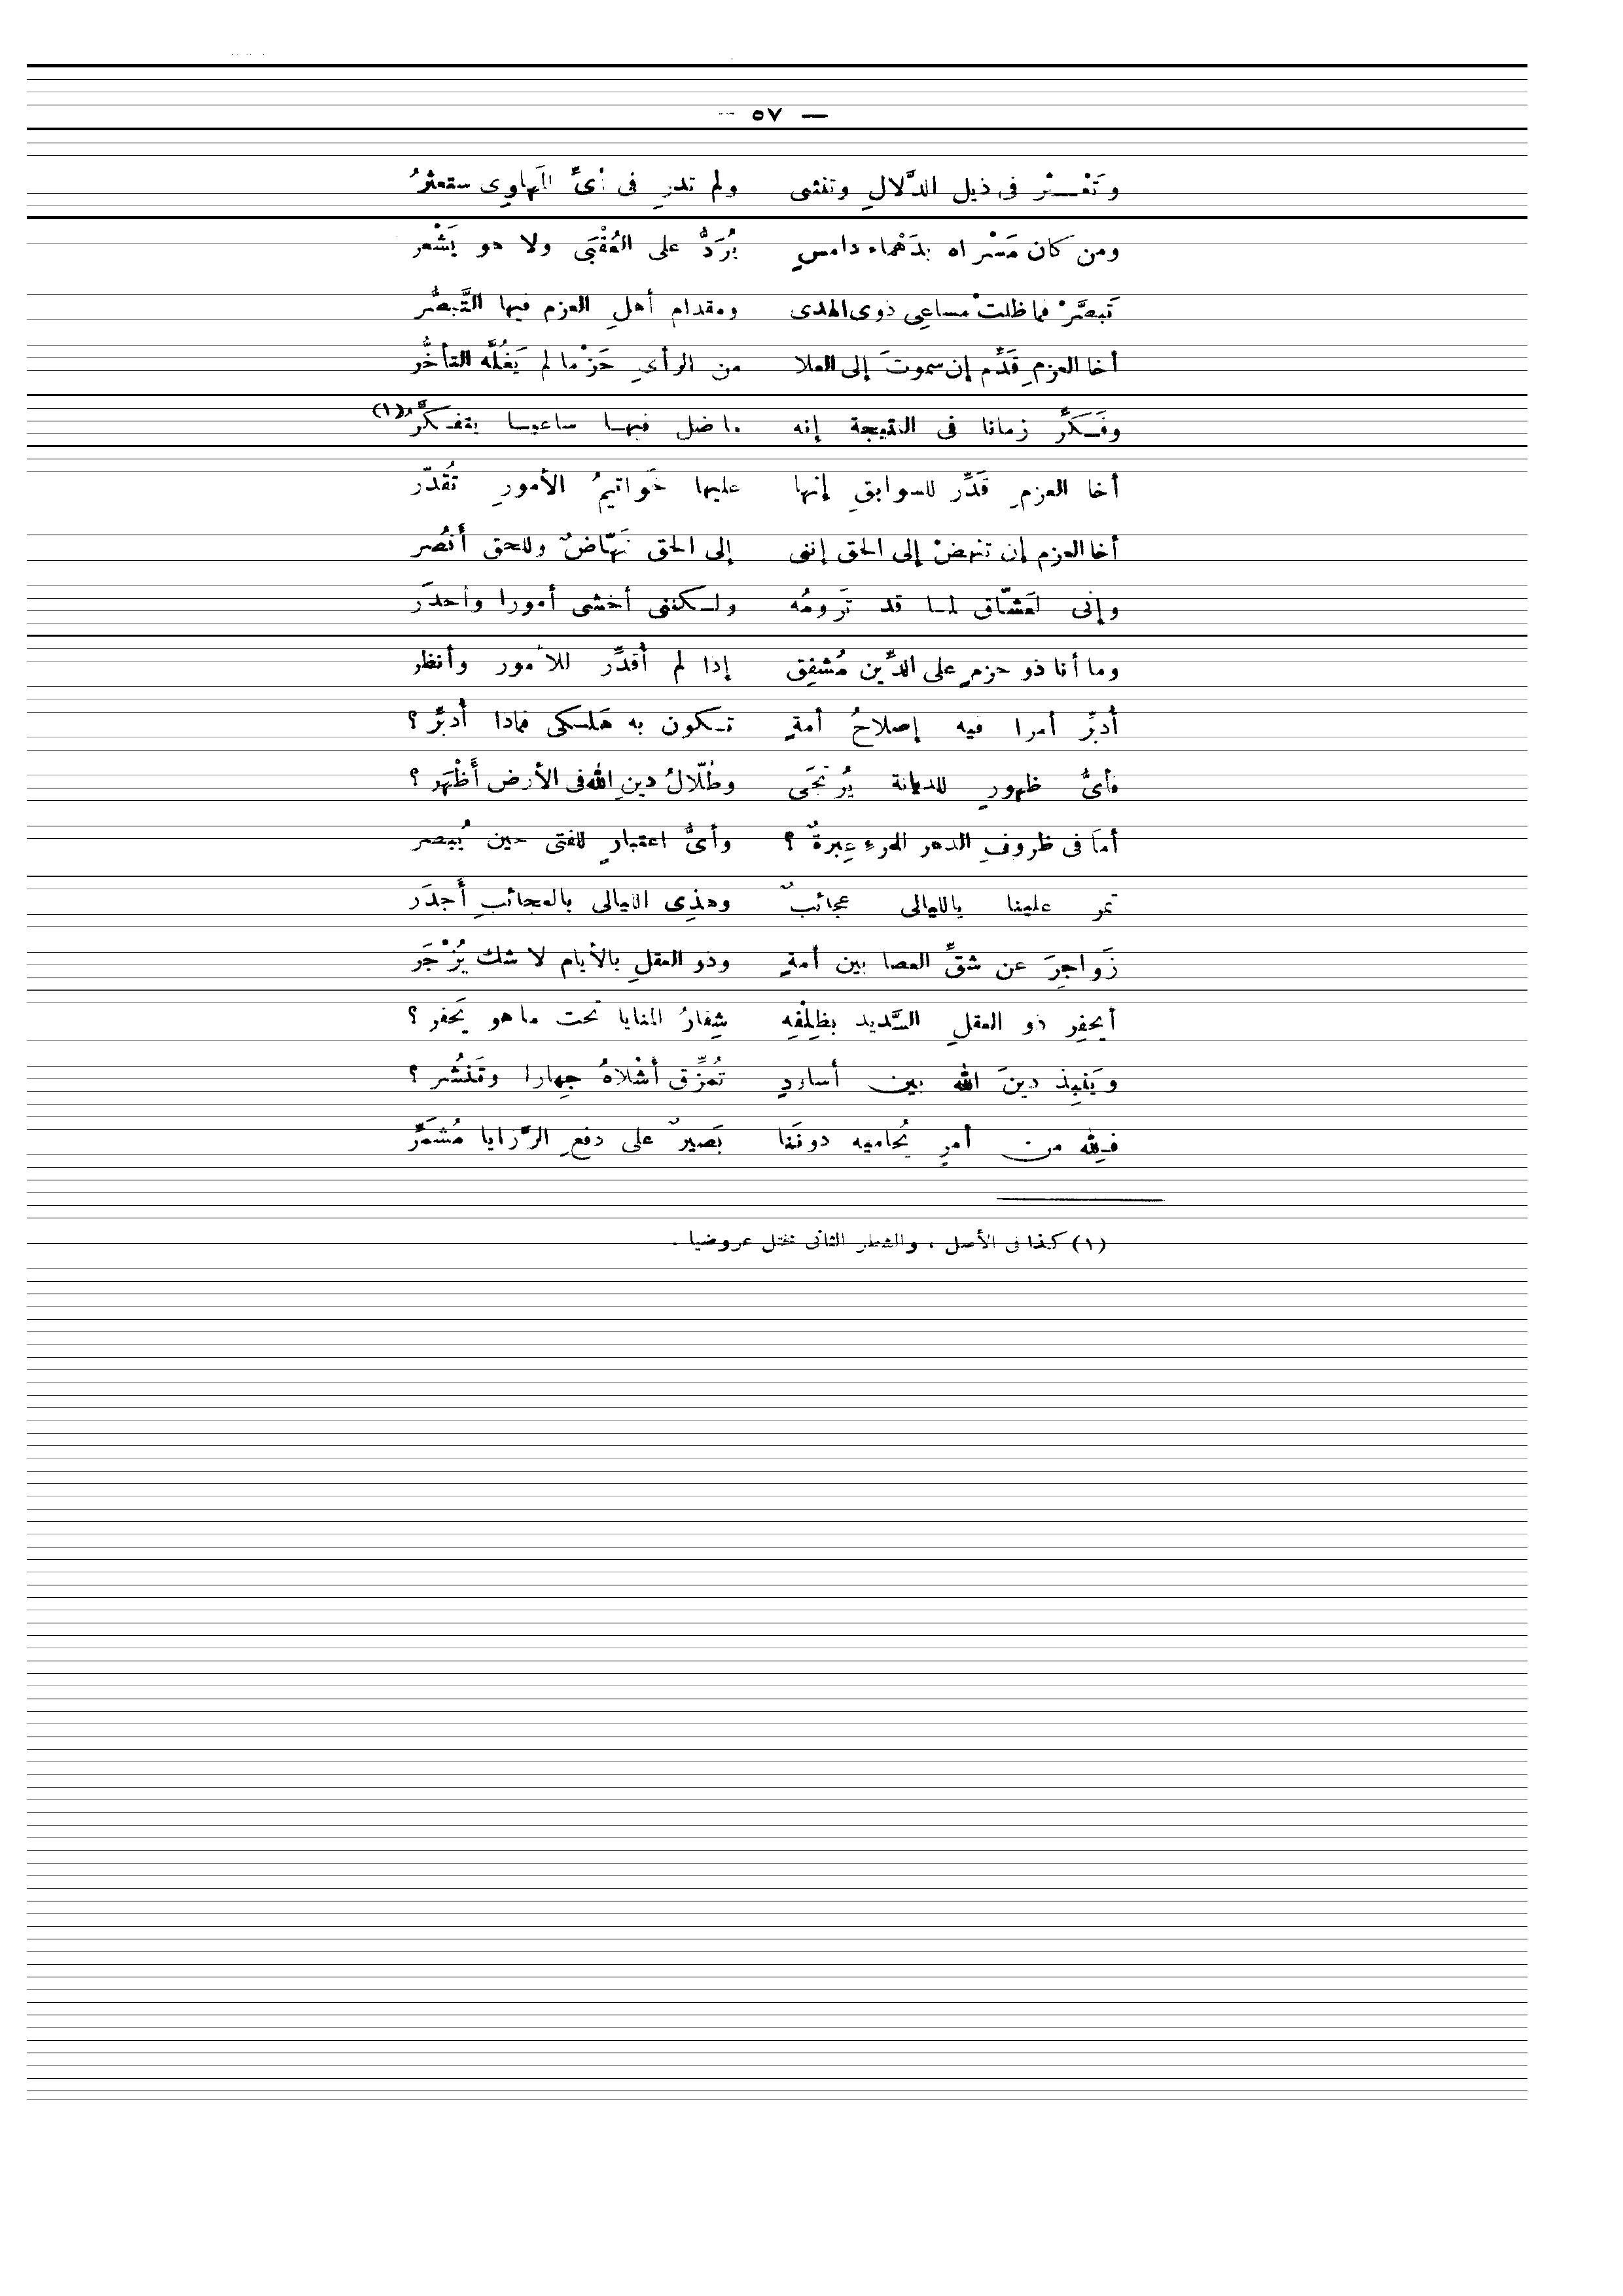 — ٥٧ —
وَتَعْـــثر فى ذيل الدَّلالِ وتنثنى ولم تدرِ فى أىِّ المَهاوِى ستعثرُ
ومن كان مَسْراه بدَهْماء دامسٍ يُرَدُّ على العُقْبَى ولا هو يَشْعر
تَبصَّرْ فما ظلتْ مساعِى ذوى الهدى ومقدام أهلِ العزم فيها التَّبصُّر
أخا العزمِ قَدِّم إن سموتَ إلى العلا من الرأىِ حَزْما لم يَغُلَّه التأخُّر
وفَـكِّر زمانا فى النتيجة إنه ماضل فيهـا ساعيـا يتفـكَّرُ(١)
أخا العزمِ قَدِّر للسوابقِ إنها عليها خَواتيمُ الأمورِ تُقدّر
أخا العزم إن تنهضْ إلى الحق إننى إلى الحق نَهّاضٌ وللحق أَنصُر
وإنى لعَشّاق لمـا قد تَرومُه ولـكننى أخشى أمورا وأحذَر
وما أنا ذو حزمٍ على الدِّين مُشفِق إذا لم أُقدِّر للأمور وأنظر
أُدبِّر أمرا فيه إصلاحُ أمةٍ تـكون به هَلـكى فماذا أُدبِّر ؟
فأىُّ ظهورٍ للديانة يُرتَجَى وطُلّالُ دينِ الله فى الأرض أَظْهَر ؟
أمَا فى ظروفِ الدهر للمرءِ عِبرةٌ ؟ وأىُّ اعتبارٍ للفتى حين يُبصر
تمر علينا بالليالى عجائبٌ وهذِى الليالى بالعجائبِ أَجدَر
زَواجِرَ عن شقِّ العصا بين أمةٍ وذو العقلِ بالأيام لا شك يُزْجَر
أيحفِر ذو العقلِ السَّديد بظِلْفِه شِفارُ المنايا تحت ما هو يَحفر ؟
ويَنبِذ دينَ الله بين أساودٍ تُمزِّق أشْلاهُ جِهارا وتَنشُر ؟
فـلِله من أمرٍ يُحاميه دونَنا بَصيرٌ على دفعِ الرَّزايا مُشمِّر
(١) كذا فى الأصل ، والشطر الثانى مختل عروضيا .